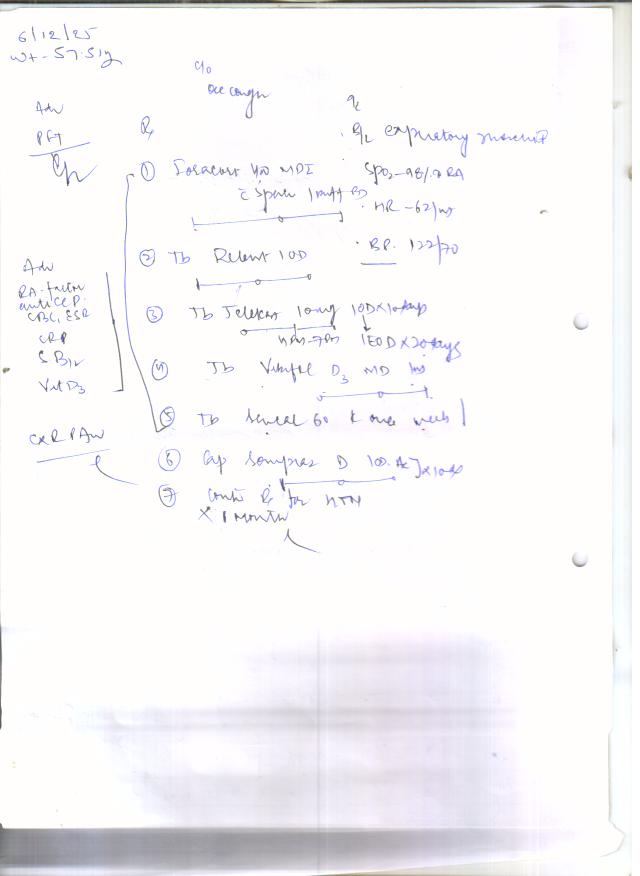 6/12/25
Wt-57.5kg
c/o
Adv
PFT
Rx
B/L expiratory
① Foracort 400 MDI
SPO2-98% RA
c̄ Spacer 1 puff BD
HR -62/m
② Tb Relent 1OD
BP. 122/70
Adv
RA-factor
anti CCP.
CBC, ESR
CRP
S B12
Vit D3
③ Tb 10mg 1OD×10days
1EOD×20days
④ Tb D3 MD
⑤ Tb 60 K once week
CXR PAv
⑥ Cap Sompraz D 1OD.Ac ×10d
⑦ Contn Rx for HTN
× 1 Month